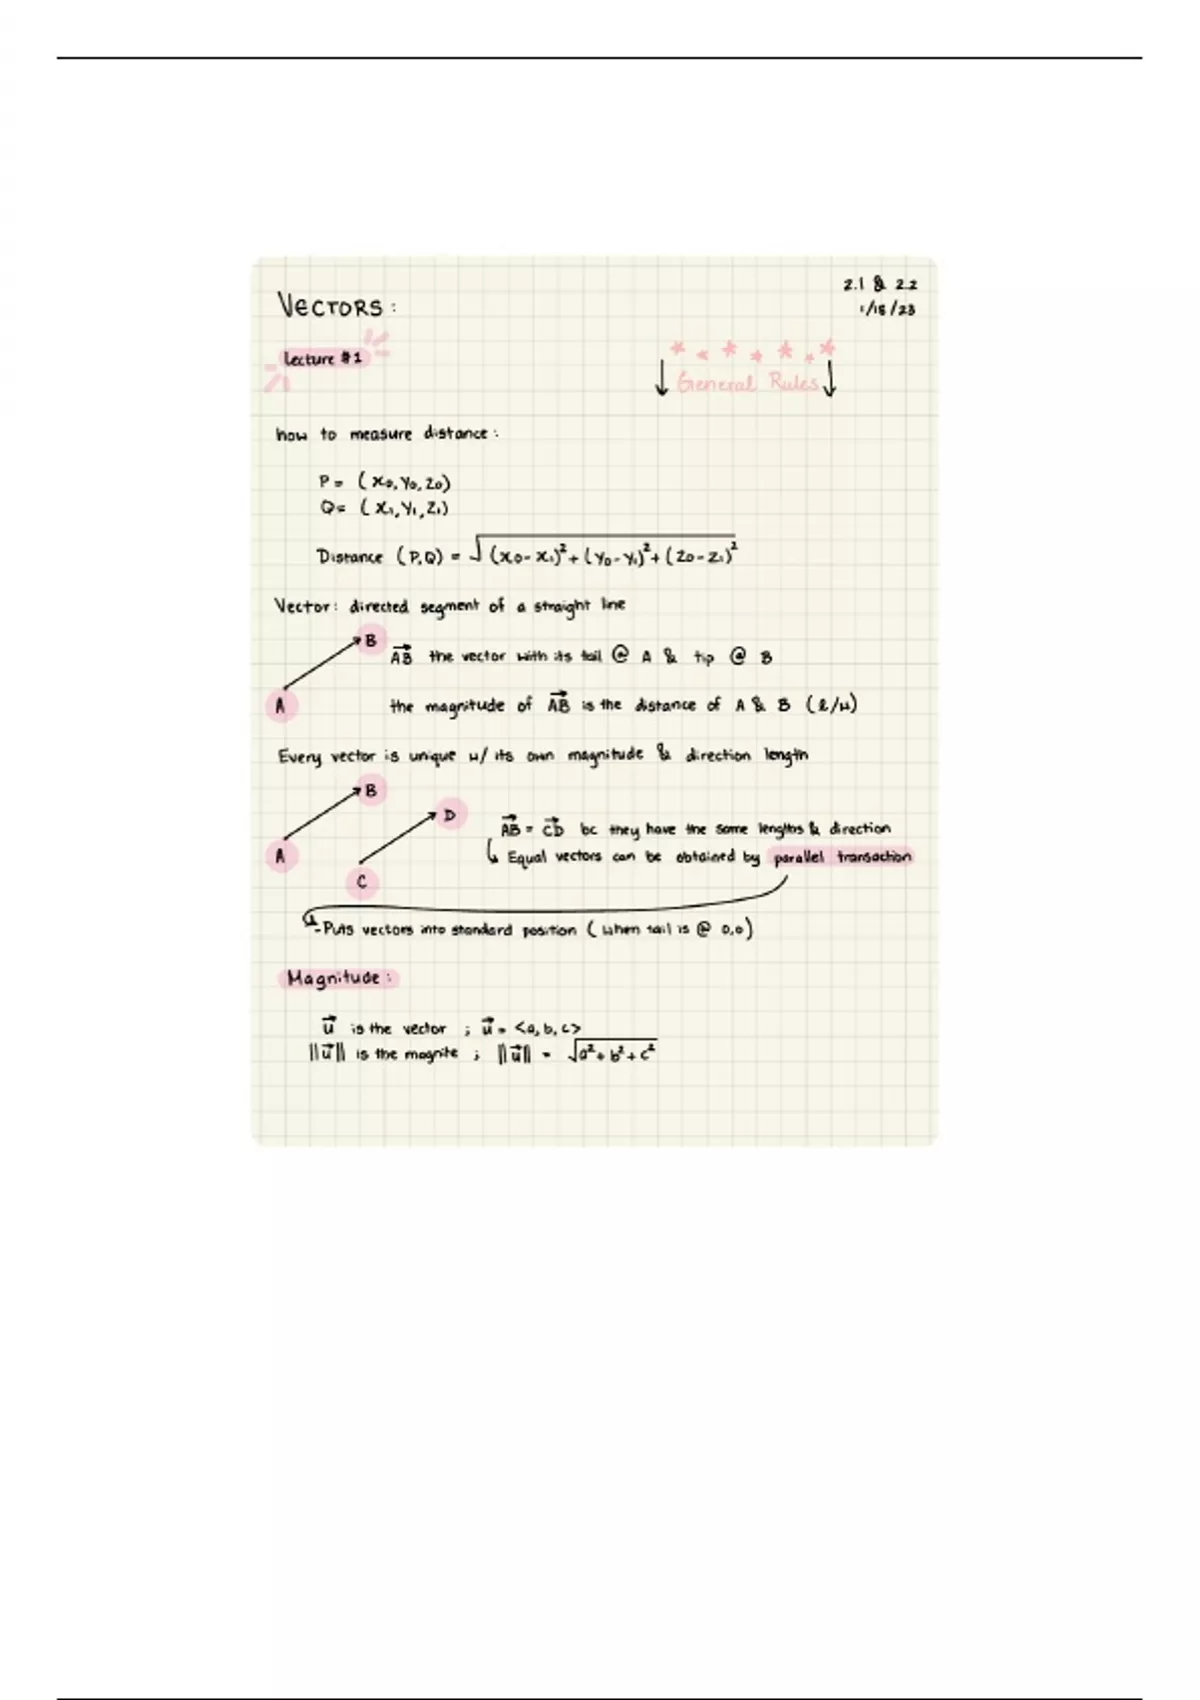 VECTORS:
2.1 & 2.2
1/18/23
Lecture #1
General Rules
how to measure distance:
P = (x₀, y₀, z₀)
Q = (x₁, y₁, z₁)
Distance (P,Q) = √(x₀-x₁)²+(y₀-y₁)²+(z₀-z₁)²
Vector: directed segment of a straight line
B
AB⃗ the vector with its tail @ A & tip @ B
A
the magnitude of AB⃗ is the distance of A & B
Every vector is unique w/ its own magnitude & direction length
B
D
AB⃗ = CD⃗ bc they have the same lengths & direction
A
Equal vectors can be obtained by parallel transaction
C
-Puts vectors into standard position (when tail is @ 0,0)
Magnitude:
u⃗ is the vector ; u⃗ = <a, b, c>
||u⃗|| is the magnite ; ||u⃗|| = √a²+b²+c²